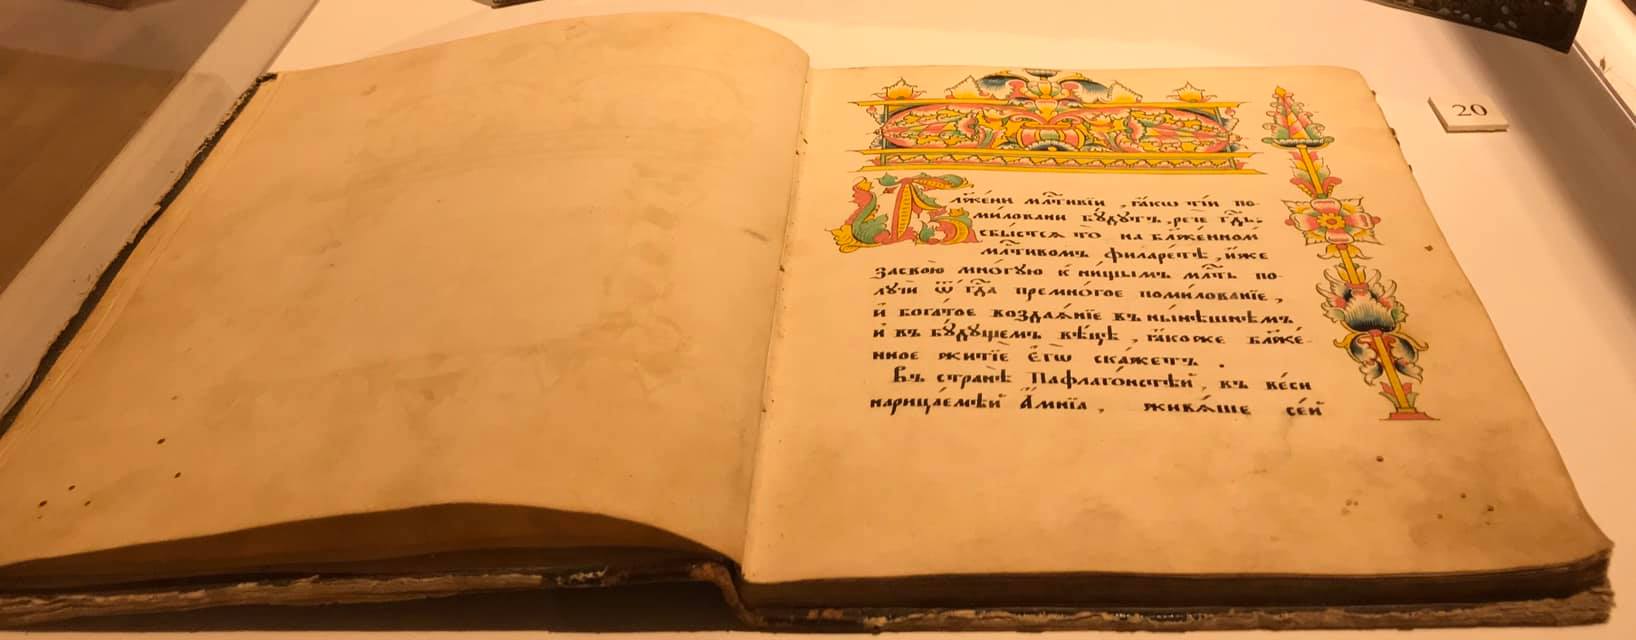 Бл҃же́ни млⷭ҇тивїи, ꙗ҆́кѡ ті́и по-
миловани бꙋ́дꙋтъ, речѐ гдⷭ҇ь.
сбы́стсѧ то̀ на бл҃же́нномъ
млⷭ҇тивомъ филаре́тѣ, и҆́же
за свою̀ мно́гꙋю к ни́щымъ млⷭ҇ть по-
лꙋчѝ ѿ гдⷭ҇а премно́гое поми́лованїе,
и҆ бога́тое воздаѧ́нїе въ ны́нѣшнемъ
и҆ въ бꙋ́дꙋщемъ вѣ́цѣ, ꙗ҆́коже бл҃же́-
нное житїѐ є҆гѡ̀ ска́жетъ.
Въ странѣ̀ Пафлаго́нстѣй, въ ве́си
нарица́емѣй А҆мні́а, живѧ́ше се́й
20